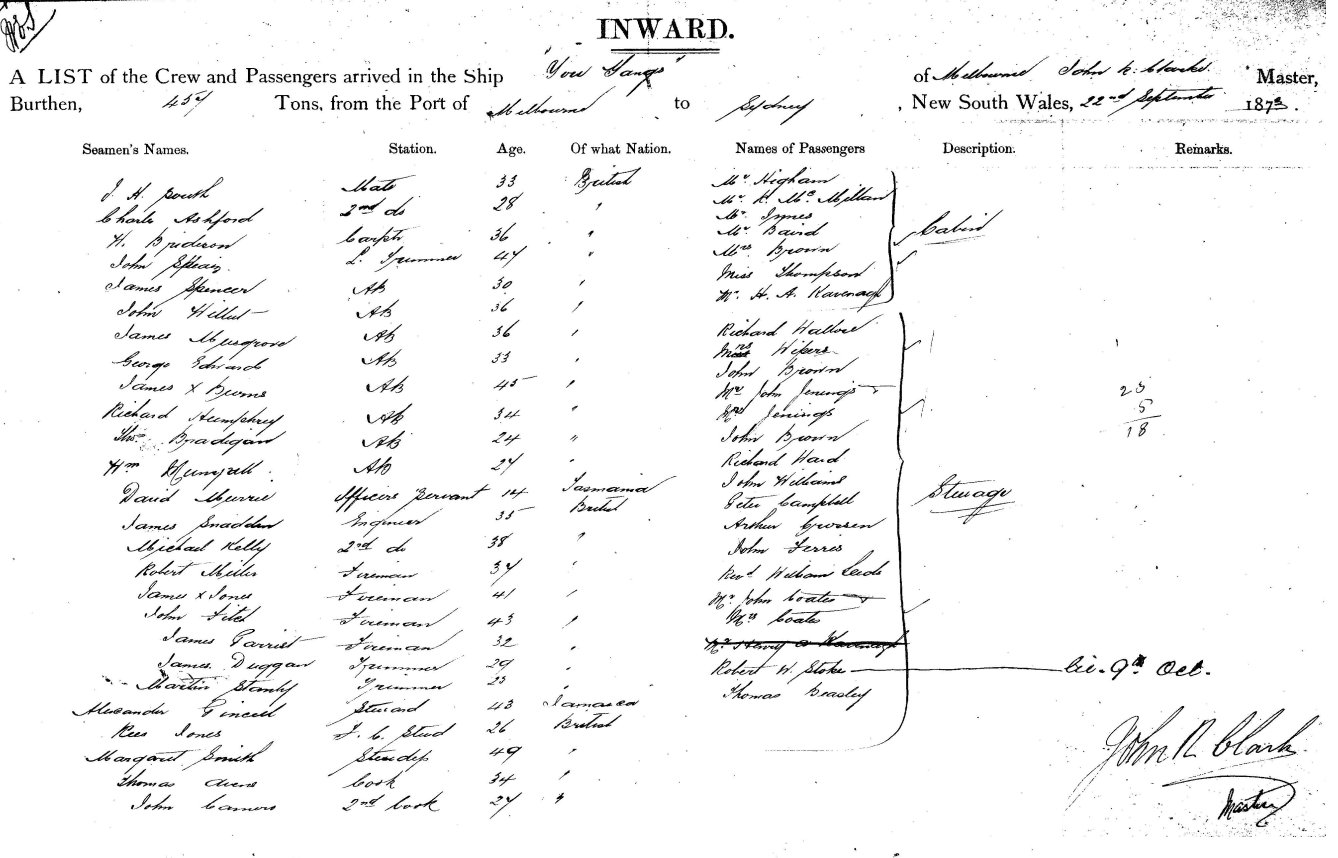 INWARD.
A LIST of the Crew and Passengers arrived in the Ship "You Yangs" of Melbourne John R. Clarke Master,
Burthen, 457 Tons, from the Port of Melbourne to Sydney, New South Wales, 22nd September 1873.
Seamen's Names. Station. Age. Of what Nation. Names of Passengers Description. Remarks.
J. H. South Mate 33 British Mr Higham
Charles Ashford 2nd do 28 " Mr R. McMillan
H. Brideson Carptr 36 " Mr Innes
John L. Trimmer 47 " Mr Baird Cabin
James Spencer AB 30 " Mrs Brown
John AB 36 " Miss Thompson
James Musgrove AB 36 " Mr. H. A. Kavenagh
George Edwards AB 33 " Richard
James X Burns AB 45 " Mrs
Richard Humphrey AB 34 " John Brown
Thos Bradigan AB 24 " Mr John Jenings 23
Wm AB 27 " Mrs Jenings 5
David Murrie Officers Servant 14 Tasmania John Brown 18
James Snadden Engineer 35 British Richard Ward
Michael Kelly 2nd do 38 " John Williams
Robert Miller Fireman 37 " Peter Campbell Steerage
James X Jones Fireman 41 " Arthur
John Fitch Fireman 43 " John Ferris
James Fireman 32 " Revd William
James Duggan Trimmer 29 " Mr John Coates
Martin Trimmer 23 " Mrs Coates
Alexander Steward 43 Jamaica Mr Henry A Kavenagh
Rees Jones F. C. Stwd 26 British Robert W. Stoke 9th Oct.
Margaret Smith Stewdss 49 " Thomas Beasley
Thomas Cook 34 "
John 2nd Cook 27 "
John R Clark
Master